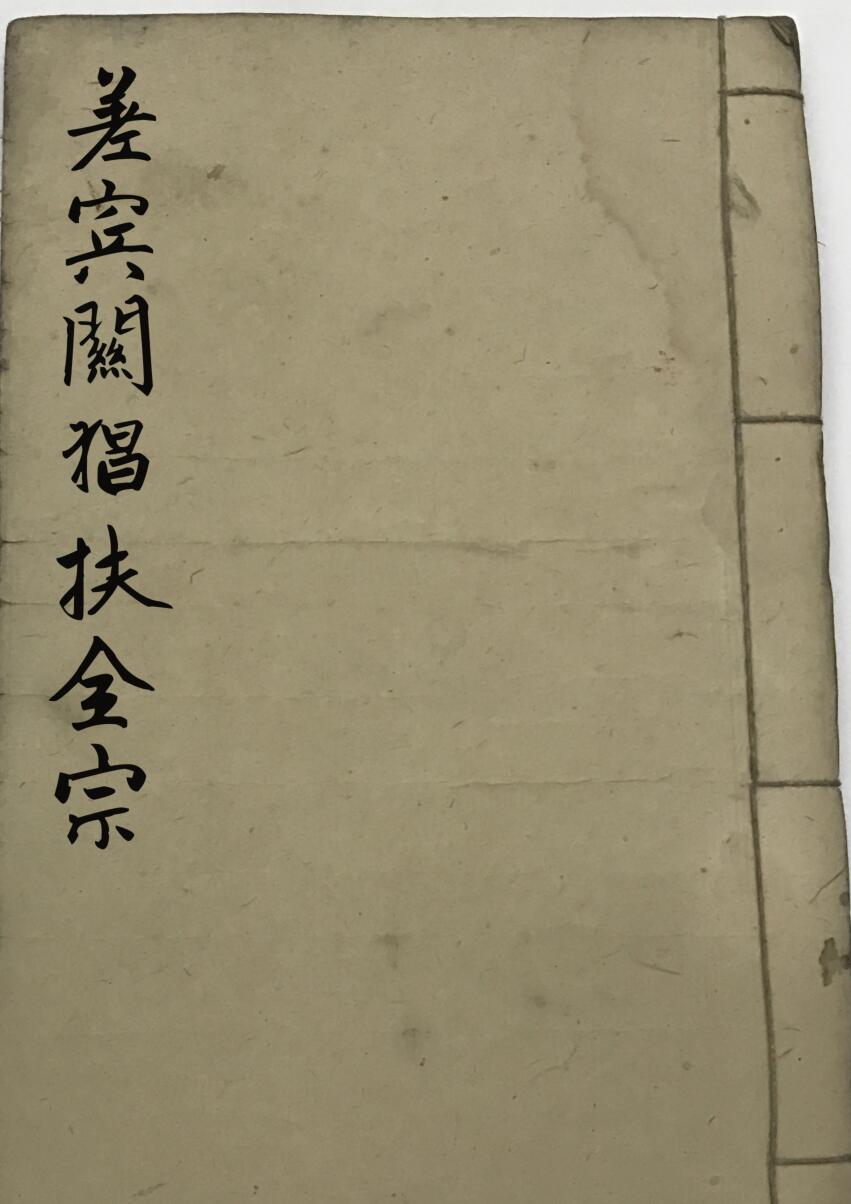 差宾關猖扶全宗